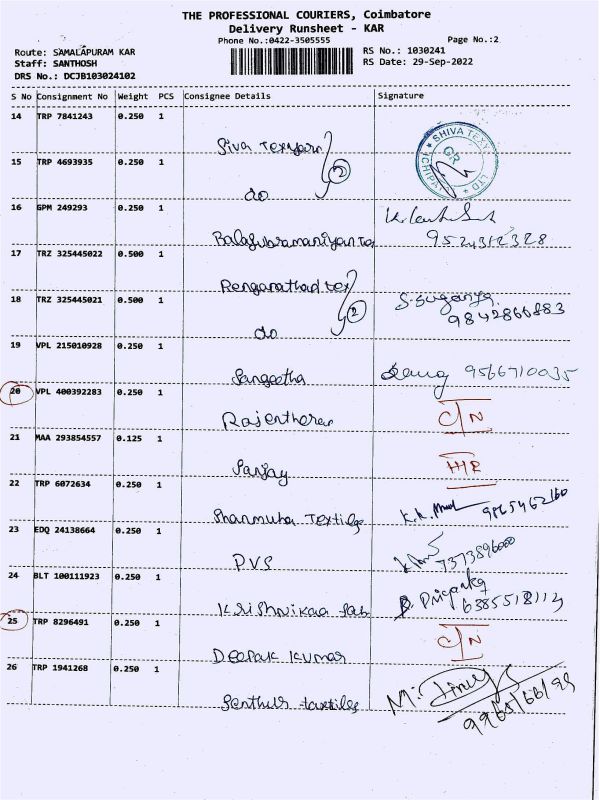 THE PROFESSIONAL COURIERS, Coimbatore
Delivery Runsheet - KAR
Phone No.:0422-3505555
Page No.:2
Route: SAMALAPURAM KAR
RS No.: 1030241
Staff: SANTHOSH
RS Date: 29-Sep-2022
DRS No.: DCJB103024102
S No Consignment No Weight PCS Consignee Details Signature
14 TRP 7841243 0.250 1
Siva Texyarn
SHIVA TEXY LTD
15 TRP 4693935 0.250 1
do 2
16 GPM 249293 0.250 1
Balasubramaniyan Tex
9524312328
17 TRZ 325445022 0.500 1
Renganathan tex
18 TRZ 325445021 0.500 1
do 2
S.Suganya
9842866883
19 VPL 215010928 0.250 1
Sangeetha 9566710035
20 VPL 400392283 0.250 1
Rajentheran C/N
21 MAA 293854557 0.125 1
Sanjay
22 TRP 6072634 0.250 1
Shanmuha Textiles 9865462160
23 EDQ 24138664 0.250 1
PVS 7373896000
24 BLT 100111923 0.250 1
Krishnikaa fab
Priyanka
6385518113
25 TRP 8296491 0.250 1
Deepak Kumar C/N
26 TRP 1941268 0.250 1
Senthur textiles